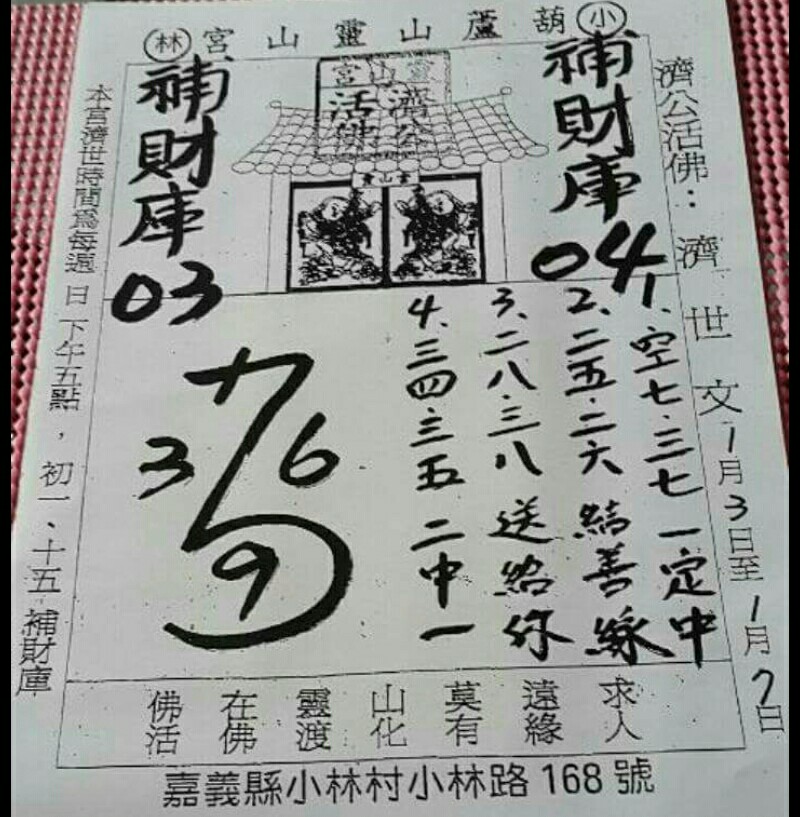 小葫蘆山靈山宮林
濟公活佛：濟世文1月3日至1月7日
補財庫04
靈山宮
濟公
活佛
補財庫03
1、空七.三七一定中
2、二五.二六結善緣
3、二八.三八送給你
4、三四.三五二中一
3
6
9
本宮濟世時間為每週日下午五點，初一、十五補財庫
佛在靈山莫遠求
活佛渡化有緣人
嘉義縣小林村小林路168號